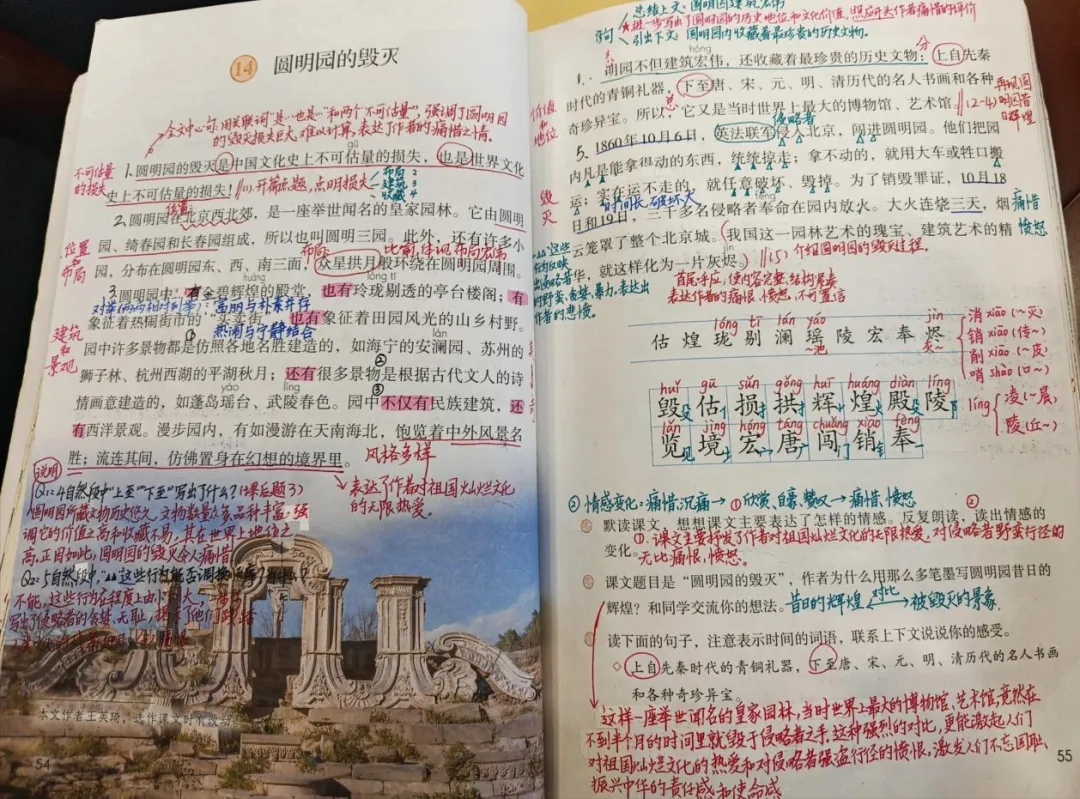 14 圆明园的毁灭
全文中心句:用关联词"是…也是"和两个"不可估量",强调了圆明园
的毁灭损失巨大,难以计算,表达了作者的痛惜之情。
gū
不可估量
的损失
1.圆明园的毁灭是中国文化史上不可估量的损失,也是世界文化
史上不可估量的损失!
开篇点题,点明损失
布局 2
建筑 3
收藏 4
位置
2.圆明园在北京西北郊,是一座举世闻名的皇家园林。它由圆明
园、绮春园和长春园组成,所以也叫圆明三园。此外,还有许多小
位置
和
布局
布局:
比喻,体现布局宏伟
园,分布在圆明园东、西、南三面,众星拱月般环绕在圆明园周围。
huáng
lóng tī
3.圆明园中,有金碧辉煌的殿堂,也有玲珑剔透的亭台楼阁;有
对举(两两相对列举):富丽与朴素并存
象征着热闹街市的"买卖街",也有象征着田园风光的山乡村野。
①
热闹与宁静结合
lán
建筑
和
景观
园中许多景物都是仿照各地名胜建造的,如海宁的安澜园、苏州的
②
狮子林、杭州西湖的平湖秋月;还有很多景物是根据古代文人的诗
yáo
líng
③
情画意建造的,如蓬岛瑶台、武陵春色。园中不仅有民族建筑,还
有西洋景观。漫步园内,有如漫游在天南海北,饱览着中外风景名
胜;流连其间,仿佛置身在幻想的境界里。
风格多样
表达了作者对祖国灿烂文化
的无限热爱。
说明
Q1:4自然段中"上至""下至"写出了什么?(课后题3)
圆明园所藏文物历史悠久,文物数量众多,品种丰富,强
调它的价值之高和收藏不易,其在世界上地位之
高。正因如此,圆明园的毁灭令人痛惜
不能,这些行为在程度上由小
写出了侵略者的贪婪、无耻
本文作者王英琦,选作课文时有改动
54
总结上文:圆明园建筑宏伟
进一步写出了圆明园的历史地位和文化价值,照应开头作者痛惜的评价
引出下文:圆明园内收藏着最珍贵的历史文物。
hóng
明园不但建筑宏伟,还收藏着最珍贵的历史文物:上自先秦
分
时代的青铜礼器,下至唐、宋、元、明、清历代的名人书画和各种
价值
和
地位
总
奇珍异宝。所以,它又是当时世界上最大的博物馆、艺术馆。
(2-4)
再现圆
明园昔
日辉煌
侵略者
5.1860年10月6日,英法联军侵入北京,闯进圆明园。他们把园
内凡是能拿得动的东西,统统掠走;拿不动的,就用大车或牲口搬
运;实在运不走的,就任意破坏、毁掉。为了销毁罪证,10月18
毁
灭
时间长,破坏大
fèng
日和19日,三千多名侵略者奉命在园内放火。大火连烧三天,烟
痛惜
愤怒
云笼罩了整个北京城。我国这一园林艺术的瑰宝、建筑艺术的精
华,就这样化为一片灰烬。
(5)介绍圆明园的毁灭过程。
"△△"这些
的野蛮、贪婪、暴力,表达出
作者的悲愤。
首尾呼应,使内容完整,结构严谨
表达作者的痛恨、愤怒、不可置信
lóng tī lán yáo jìn
估煌珑剔澜瑶陵宏奉烬
~池
灰~
消 xiāo(~灭)
销 xiāo(传~)
削 xiāo(~皮)
哨 shào(口~)
huǐ gū sǔn gǒng huī huáng diàn líng
毁估损拱辉煌殿陵
líng
凌(~晨)
陵(丘~)
lǎn jìng hóng táng chuǎng xiāo fèng
览境宏唐闯销奉
② 情感变化:痛惜、沉痛→①欣赏、自豪、赞叹→痛惜、愤怒
默读课文,想想课文主要表达了怎样的情感。反复朗读,读出情感的
变化。
①.课文主要抒发了作者对祖国灿烂文化的无限热爱,对侵略者野蛮行径的
无比痛恨、愤怒。
课文题目是"圆明园的毁灭",作者为什么用那么多笔墨写圆明园昔日的
辉煌?和同学交流你的想法。
昔日的辉煌 对比 被毁灭的景象
读下面的句子,注意表示时间的词语,联系上下文说说你的感受。
◇ 上自先秦时代的青铜礼器,下至唐、宋、元、明、清历代的名人书画
和各种奇珍异宝。
这样一座举世闻名的皇家园林,当时世界上最大的博物馆、艺术馆,竟然在
不到半个月的时间里就毁于侵略者之手,这种强烈的对比,更能激起人们
对祖国灿烂文化的热爱和对侵略者强盗行径的愤恨,激发人们不忘国耻、
振兴中华的责任感和使命感
55